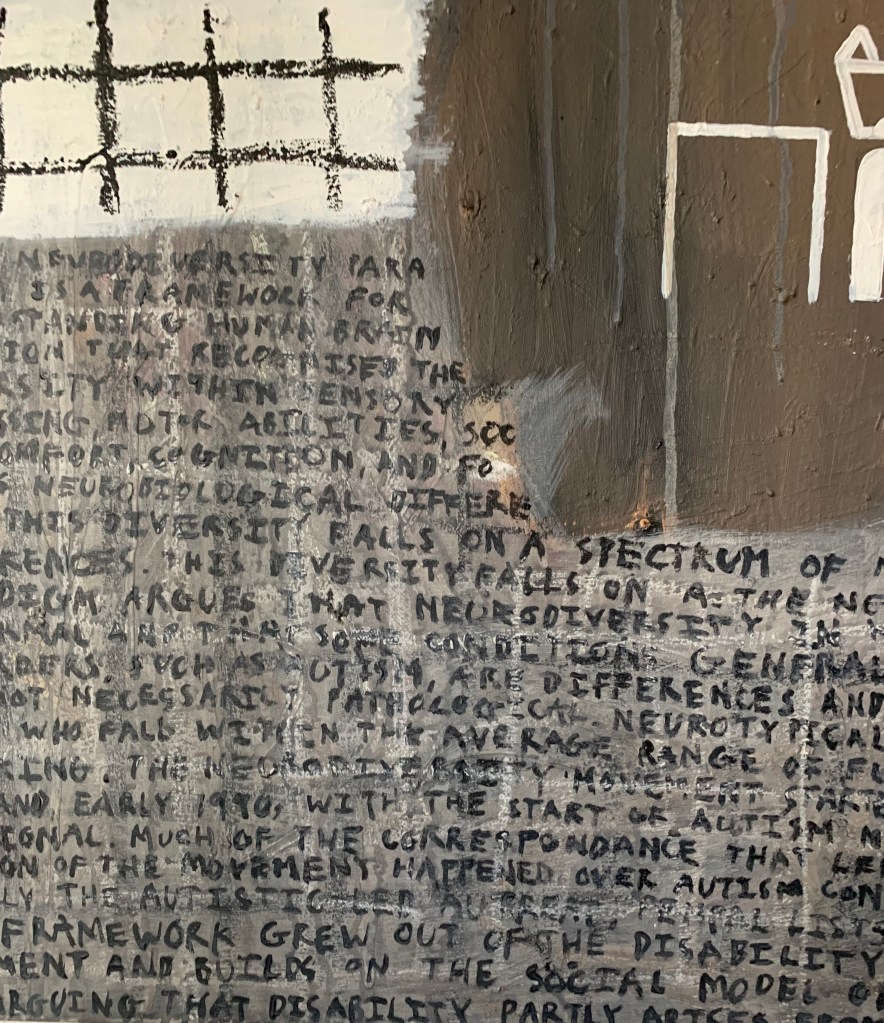 NEURODIVERSITY PARA
IS A FRAMEWORK FOR
STANDING HUMAN BRAIN
ION THAT RECOGNISES THE
RSITY WITHIN SENSORY
SSING, MOTOR ABILITIES, SOC
OMFORT, COGNITION, AND FO
NEUROBIOLOGICAL DIFFERE
THIS DIVERSITY FALLS ON A SPECTRUM OF N
RENCES. THIS DIVERSITY FALLS ON A THE NE
DIGM ARGUES THAT NEURODIVERSITY IN
RMAL AND THAT SOME CONDITIONS GENERAL
DERS, SUCH AS AUTISM, ARE DIFFERENCES AND
NOT NECESSARILY PATHOLOGICAL. NEUROTYPICAL
WHO FALL WITHIN THE AVERAGE RANGE OF FU
KING. THE NEURODIVERSITY MOVEMENT STARTE
AND EARLY 1990s WITH THE START OF AUTISM N
IGNAL. MUCH OF THE CORRESPONDANCE THAT LED
ON OF THE MOVEMENT HAPPENED OVER AUTISM CON
LY THE AUTISTIC-LED AUTREAT LISTS
FRAMEWORK GREW OUT OF THE DISABILITY
MENT AND BUILDS ON THE SOCIAL MODEL OF
ARGUING THAT DISABILITY PARTLY ARISES FROM